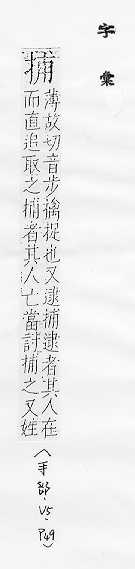 字彙
捕 薄故切音步擒捉也又逮捕逮者其人在
而直追取之捕者其人亡當討捕之又姓
(手部, V5, P49)